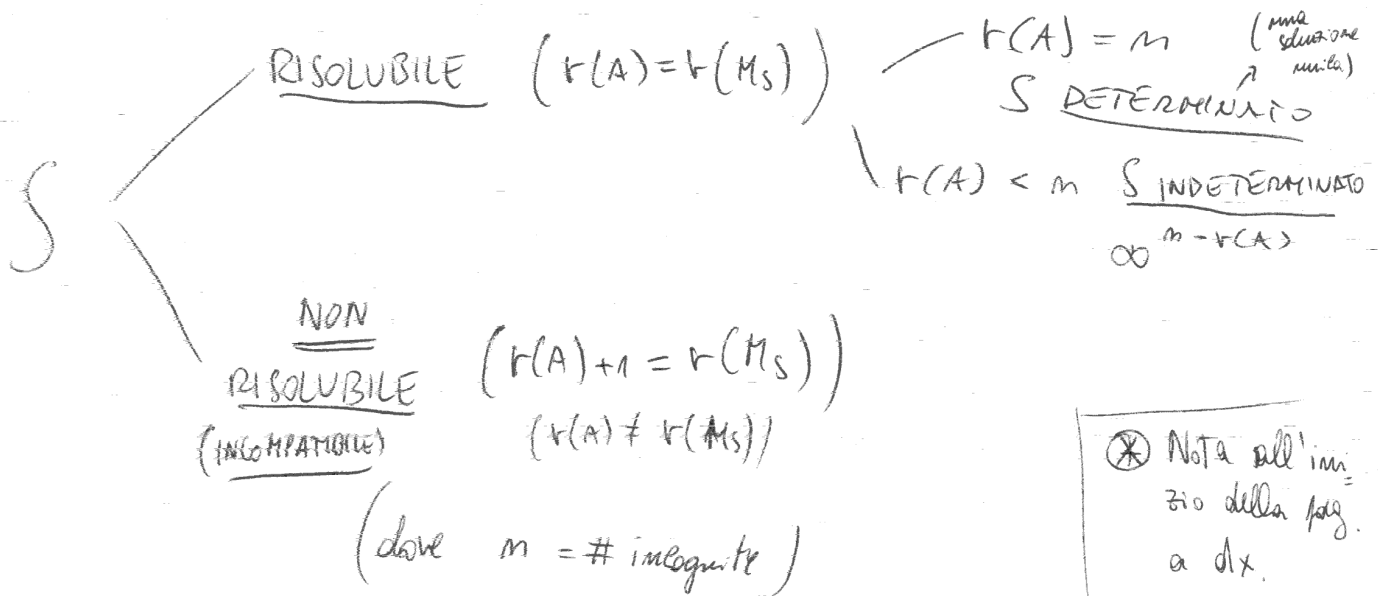 RISOLUBILE (r(A)=r(Ms)) r(A) = n (una soluzione unica)
S DETERMINATO
S
r(A) < n S INDETERMINATO
∞^n-r(A)
NON
RISOLUBILE (r(A)+1 = r(Ms))
(INCOMPATIBILE) (r(A) ≠ r(Ms))
(dove n = # incognite)
* Nota all'ini=
zio della pag.
a dx.